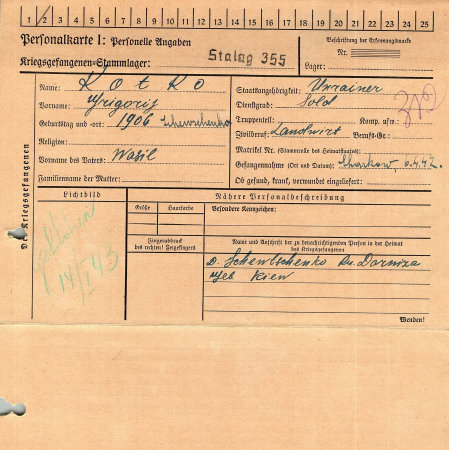 1 2 3 4 5 6 7 8 9 10 11 12 13 14 15 16 17 18 19 20 21 22 23 24 25
Personalkarte I: Personelle Angaben
Kriegsgefangenen-Stammlager: Stalag 355
Beschriftung der Erkennungsmarke
Nr.
Lager:
Des Kriegsgefangenen
Name: Kotko
Vorname: Grigorij
Geburtstag und -ort: 1906 Schewschenko
Religion:
Vorname des Vaters: Wasil
Familienname der Mutter:
Staatsangehörigkeit: Unrainer
Dienstgrad: Sold
Truppenteil: Komp. usw.:
Zivilberuf: Landwirt Berufs-Gr.:
Matrikel Nr. (Stammrolle des Heimatstaates):
Gefangennahme (Ort und Datum): Charkow, 6.4.42.
Ob gesund, krank, verwundet eingeliefert:
312
Lichtbild
14/I 43
Nähere Personalbeschreibung
Größe
Haarfarbe
Besondere Kennzeichen:
Fingerabdruck
des rechten! Zeigefingers
Name und Anschrift der zu benachrichtigenden Person in der Heimat
des Kriegsgefangenen
D. Schewtschenko Ru. Darniza
Geb Kiew
Wenden!